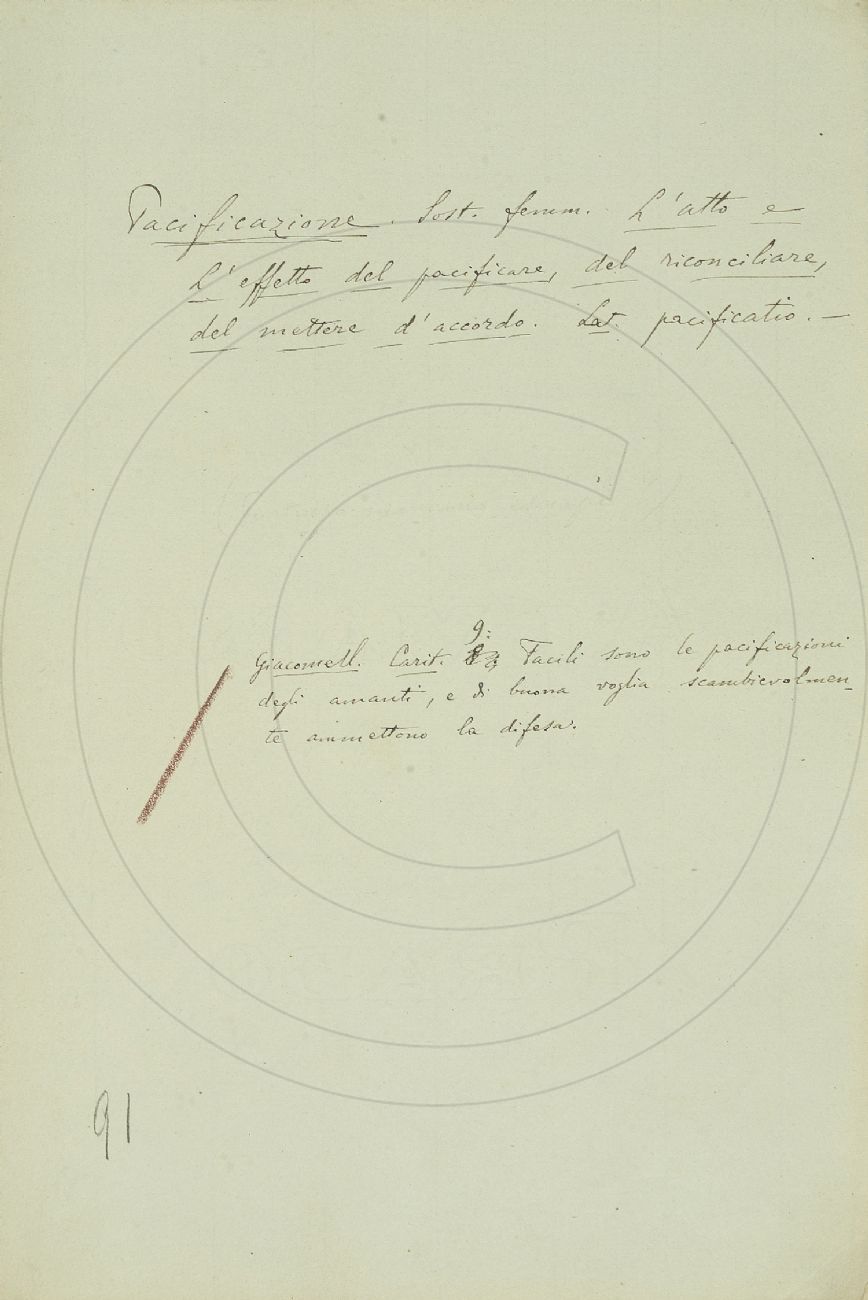 Pacificazione. Sost. femm. L'atto e
L'effetto del pacificare, del riconciliare,
del mettere d'accordo. Lat. pacificatio. —
9:
Giacomell. Carit. Facili sono le pacificazioni
degli amanti, e di buona voglia scambievolmen-
te ammettono la difesa.
91